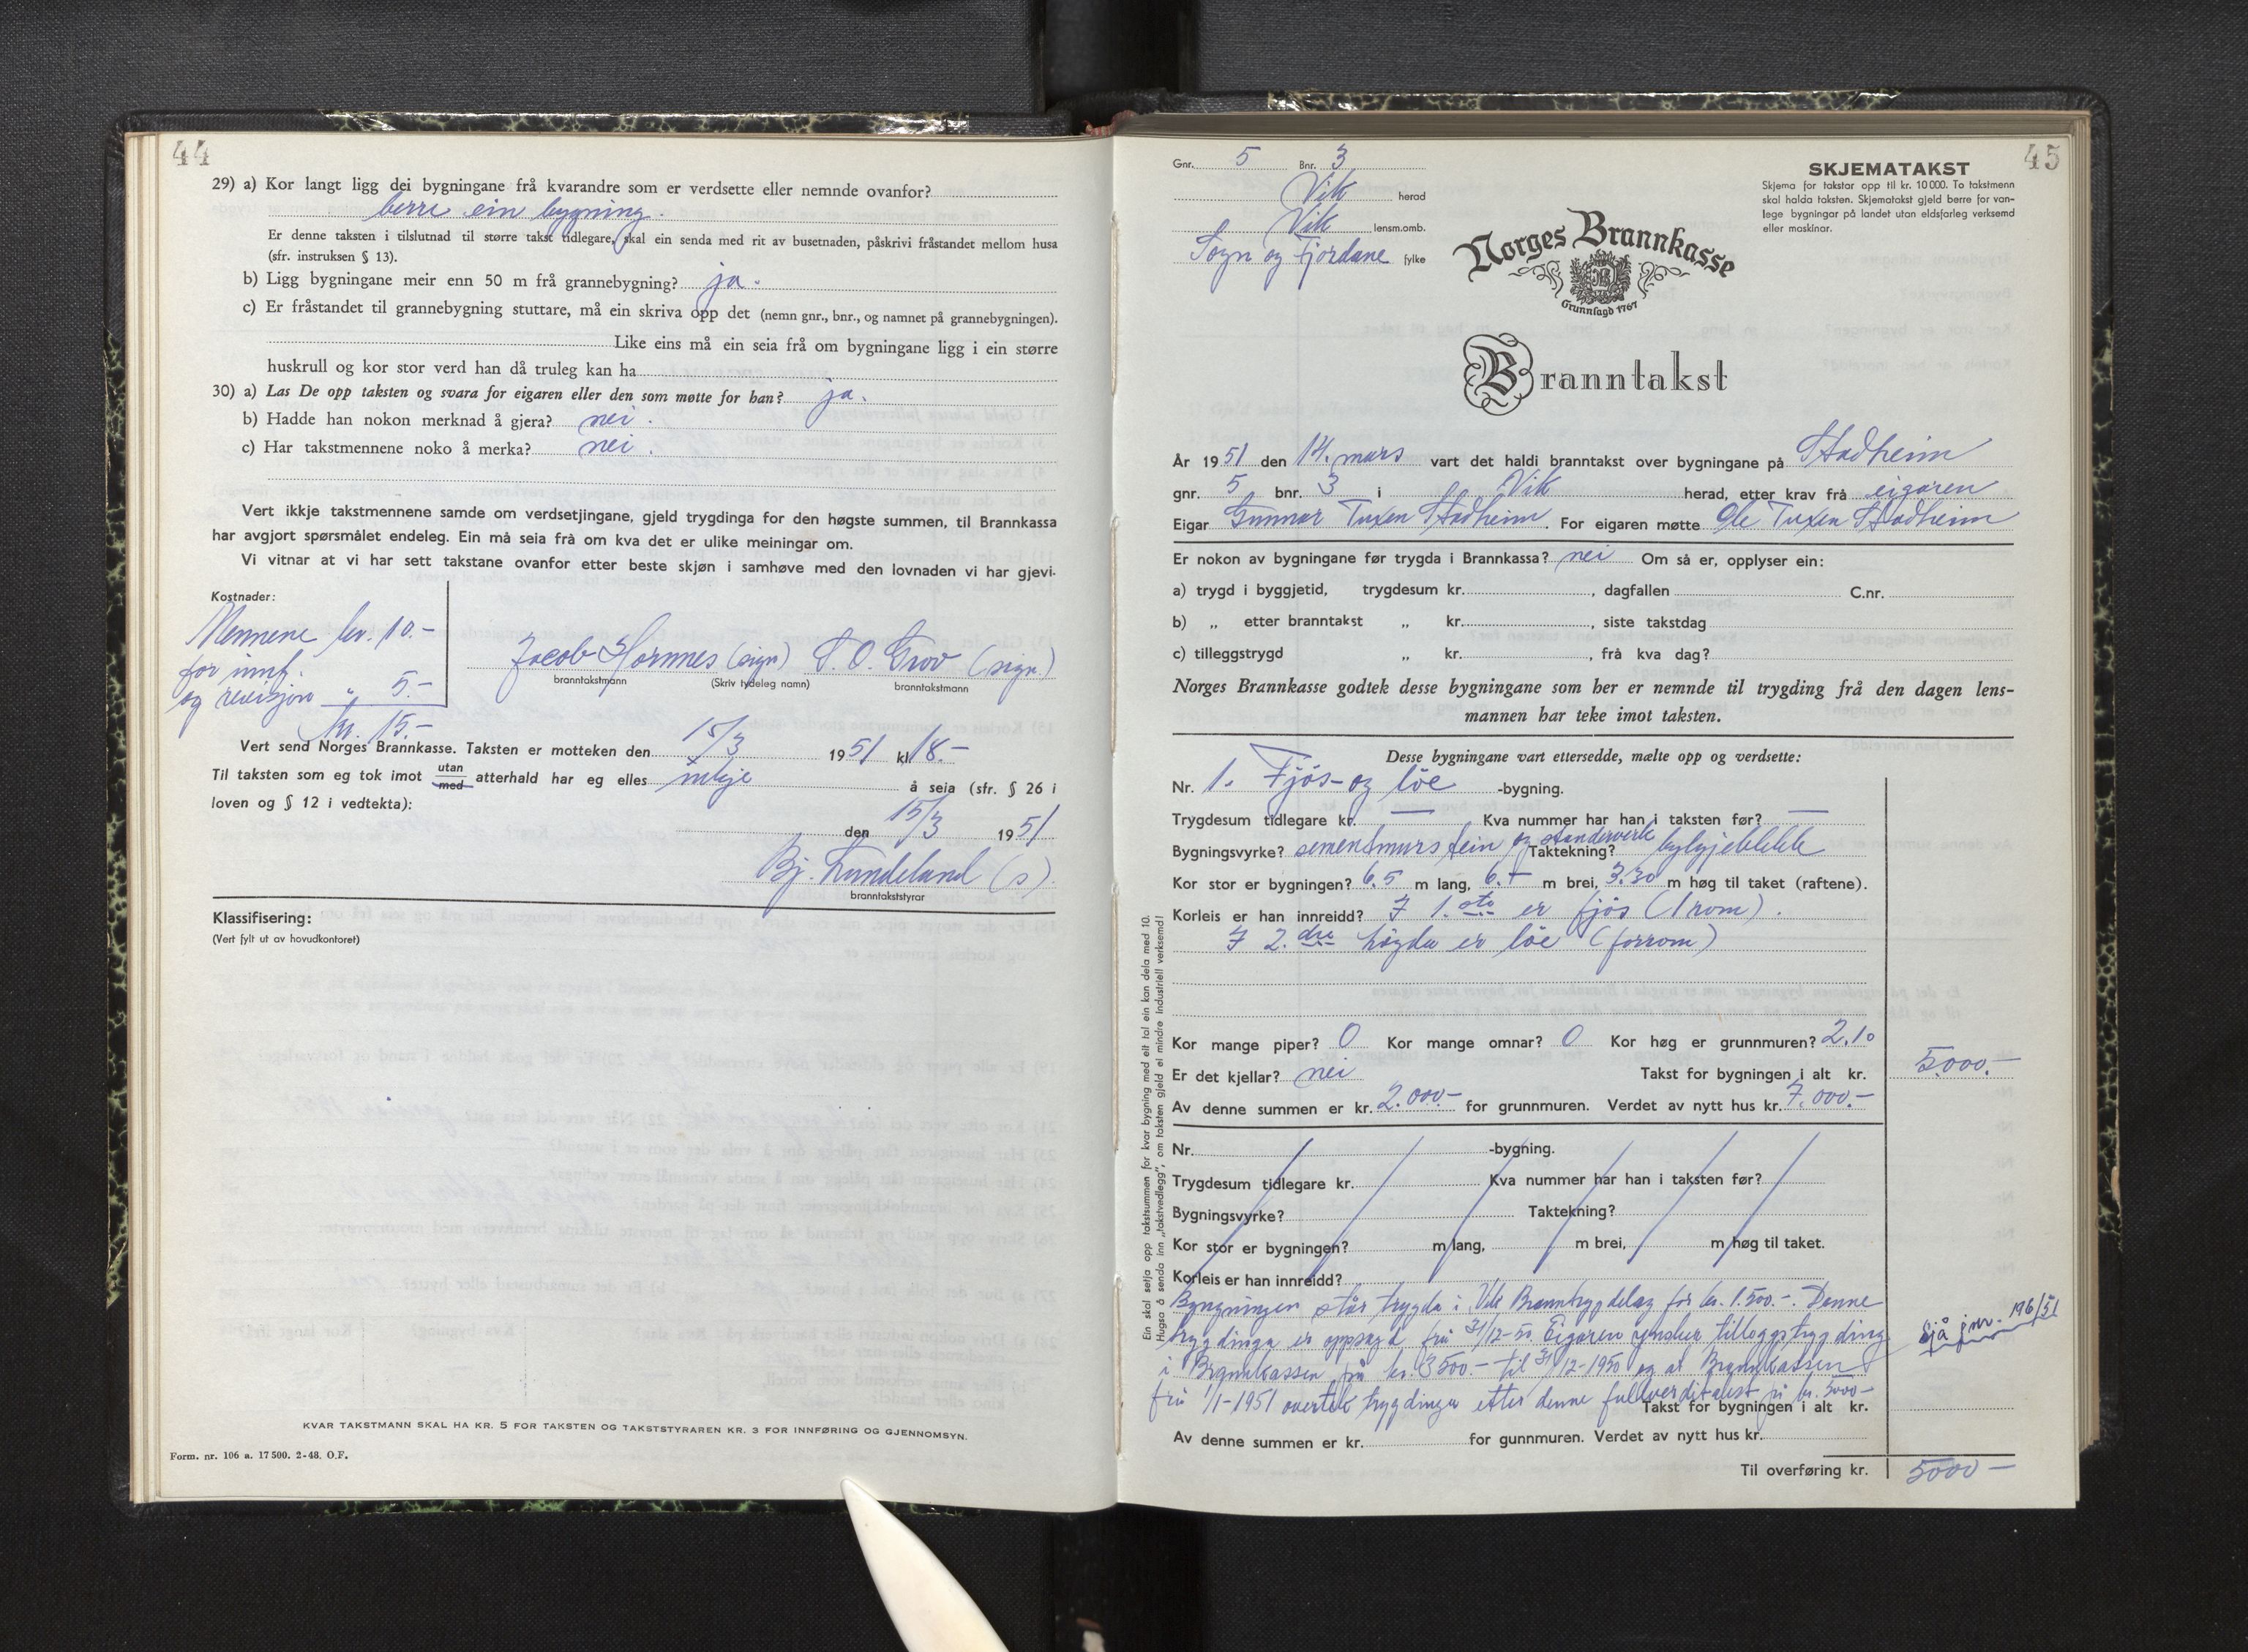 44
29) a) Kor langt ligg dei bygningane frå kvarandre som er verdsette eller nemnde ovanfor?
berre ein bygning.
Er denne taksten i tilslutnad til større takst tidlegare, skal ein senda med rit av busetnaden, påskrivi fråstandet mellom husa
(sfr. instruksen § 13).
b) Ligg bygningane meir enn 50 m frå grannebygning? ja.
c) Er fråstandet til grannebygning stuttare, må ein skriva opp det (nemn gnr., bnr., og namnet på grannebygningen).
Like eins må ein seia frå om bygningane ligg i ein større
huskrull og kor stor verd han då truleg kan ha
30) a) Las De opp taksten og svara for eigaren eller den som møtte for han? ja.
b) Hadde han nokon merknad å gjera? nei.
c) Har takstmennene noko å merka? nei.
Vert ikkje takstmennene samde om verdsetjingane, gjeld trygdinga for den høgste summen, til Brannkassa
har avgjort spørsmålet endeleg. Ein må seia frå om kva det er ulike meiningar om.
Vi vitnar at vi har sett takstane ovanfor etter beste skjøn i samhøve med den lovnaden vi har gjevi.
Kostnader:
Mennene kr. 10.-
for innf.
og revisjon " 5.-
kr. 15.-
Jacob Hornnes (sign) S. O. Grov (sign.)
branntakstmann (Skriv tydeleg namn) branntakstmann
Vert send Norges Brannkasse. Taksten er motteken den 15/3 1951 kl 18.-
Til taksten som eg tok imot utan med atterhald har eg elles inkje å seia (sfr. § 26 i
loven og § 12 i vedtekta):
den 15/3 1951
Bj. Lundeland (s).
branntakststyrar
Klassifisering:
(Vert fylt ut av hovudkontoret)
KVAR TAKSTMANN SKAL HA KR. 5 FOR TAKSTEN OG TAKSTSTYRAREN KR. 3 FOR INNFØRING OG GJENNOMSYN.
Form. nr. 106 a. 17 500. 2-48. O.F.
45
Gnr. 5 Bnr. 3
Vik herad
Vik lensm.omb.
Sogn og Fjordane fylke
SKJEMATAKST
Skjema for takstar opp til kr. 10 000. To takstmenn
skal halda taksten. Skjematakst gjeld berre for van-
lege bygningar på landet utan eldsfarleg verksemd
eller maskinar.
Norges Brannkasse
Grunnlagd 1767
Branntakst
År 1951 den 14. mars vart det haldi branntakst over bygningane på Stadheim
gnr. 5 bnr. 3 i Vik herad, etter krav frå eigaren
Eigar Gunnar Tuxen Stadheim. For eigaren møtte Ole Tuxen Stadheim
Er nokon av bygningane før trygda i Brannkassa? nei Om så er, opplyser ein:
a) trygd i byggjetid, trygdesum kr. , dagfallen C.nr.
b) „ etter branntakst „ kr. , siste takstdag
c) tilleggstrygd „ kr. , frå kva dag?
Norges Brannkasse godtek desse bygningane som her er nemnde til trygding frå den dagen lens-
mannen har teke imot taksten.
Desse bygningane vart ettersedde, mælte opp og verdsette:
Nr. 1. Fjös- og löe -bygning.
Trygdesum tidlegare kr. — Kva nummer har han i taksten før? —
Bygningsvyrke? sementmurstein og standerverk Taktekning?
Kor stor er bygningen? 6.5 m lang, 6.- m brei, 3.30 m høg til taket (raftene).
Korleis er han innreidd? I 1.ste er fjös (1 rom).
I 2.dre högda er löe (forrom)
Kor mange piper? 0 Kor mange omnar? 0 Kor høg er grunnmuren? 2.10
Er det kjellar? nei Takst for bygningen i alt kr. 5.000.-
Av denne summen er kr. 2.000.- for grunnmuren. Verdet av nytt hus kr. 7.000.-
Nr. -bygning.
Trygdesum tidlegare kr. Kva nummer har han i taksten før?
Bygningsvyrke? Taktekning?
Kor stor er bygningen? m lang, m brei, m høg til taket.
Korleis er han innreidd?
Bygningen står trygda i Vik Branntrygdelag for kr. 1.500.-. Denne
trygdinga er oppsagd frå 31/12-50. Eigaren ynskjer tilleggstrygding
i Brannkassen på kr. 3500.- til 31/12-1950 og at Brannkassen
frå 1/1-1951 overtek trygdinga etter denne fullverditakst på kr. 5000-
Sjå jnr. 196/51
Takst for bygningen i alt kr.
Av denne summen er kr. for gunnmuren. Verdet av nytt hus kr.
Til overføring kr. 5000-
Ein skal setja opp takstsummen for kvar bygning med eit tal ein kan dela med 10.
Hugsa å senda inn „takstvedlegg", om taksten gjeld ei mindre industriell verksemd!